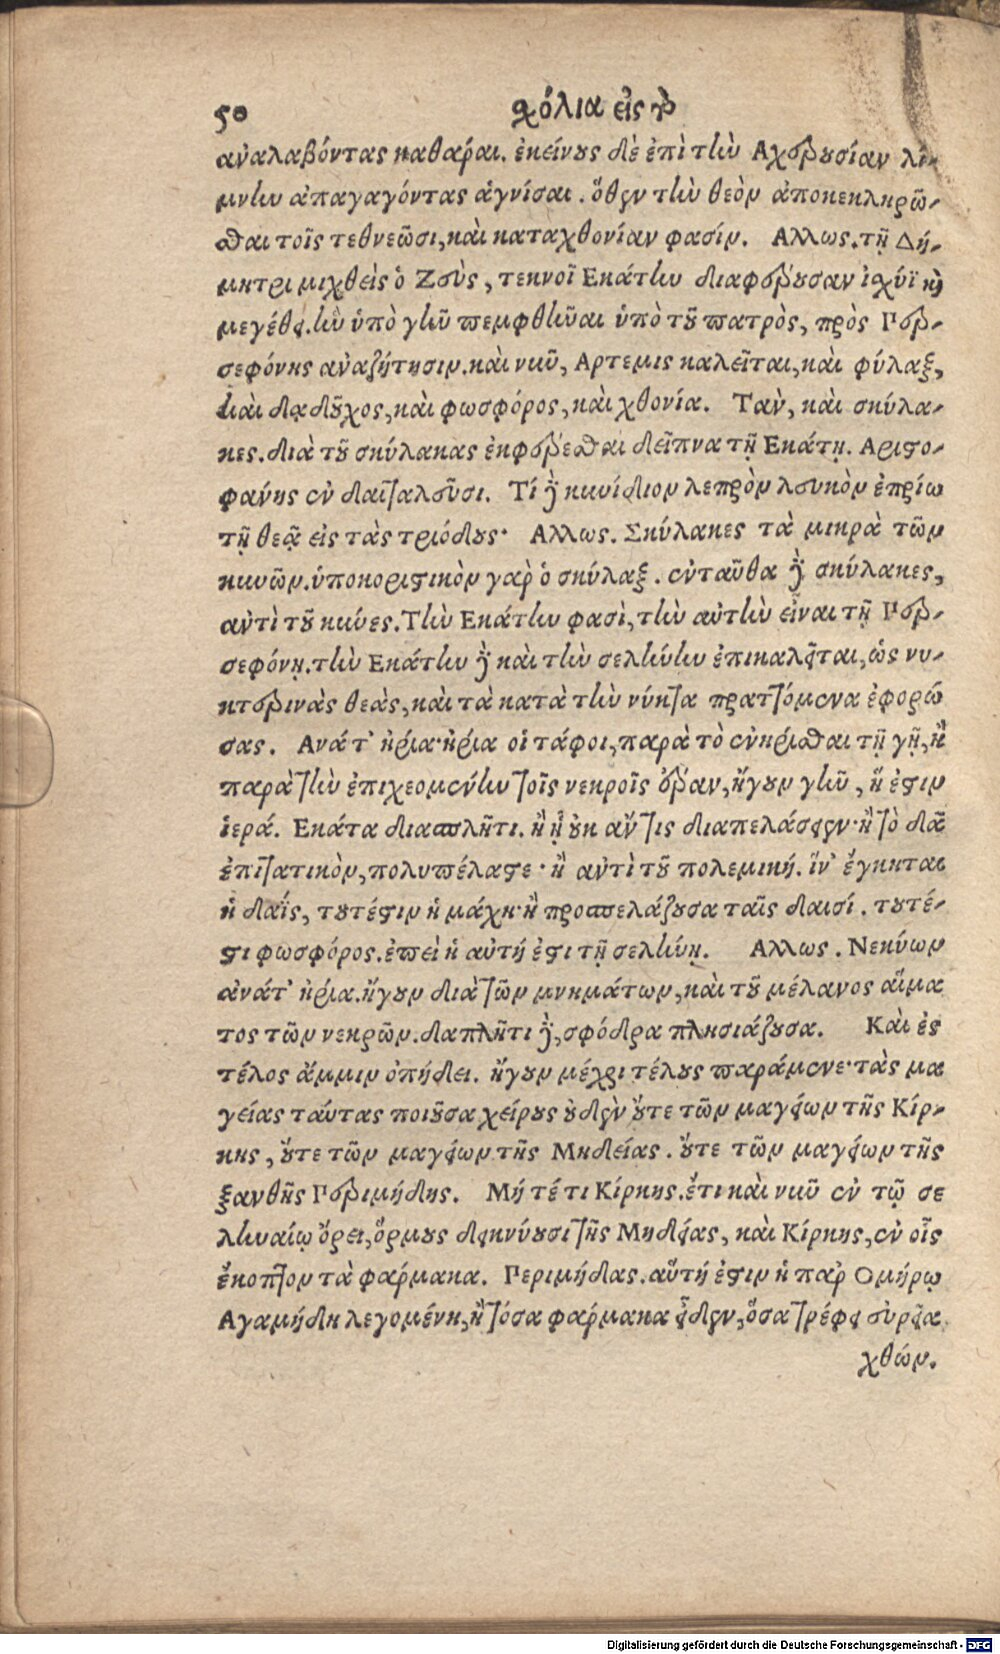 50 σχόλια εἰς τὸ
ἀναλαβόντας καθαῖραι. ἐκείνους δὲ ἐπὶ τὴν Ἀχερουσίαν λί-
μνην ἀπαγαγόντας ἁγνίσαι. ὅθεν τὴν θεὸν ἀποκεκληρῶ-
σθαι τοῖς τεθνεῶσι, καὶ καταχθονίαν φασίν. Ἄλλως. τῇ Δή-
μητρι μιχθεὶς ὁ Ζεὺς, τεκνοῖ Ἑκάτην διαφέρουσαν ἰσχύϊ καὶ
μεγέθει. ἣν ὑπὸ γῆν πεμφθῆναι ὑπὸ τοῦ πατρὸς, πρὸς Περ-
σεφόνης ἀναζήτησιν. καὶ νῦν, Ἄρτεμις καλεῖται, καὶ φύλαξ,
καὶ δᾳδοῦχος, καὶ φωσφόρος, καὶ χθονία. Τὰν, καὶ σκύλα-
κες. διὰ τοῦ σκύλακας ἐκφέρεσθαι δεῖπνα τῇ Ἑκάτῃ. Ἀριστο-
φάνης ἐν δαιταλεῦσι. Τί δὲ κυνίδιον λεπρὸν λευκὸν ἐπρίω
τῇ θεᾷ εἰς τὰς τριόδους· Ἄλλως. Σκύλακες τὰ μικρὰ τῶν
κυνῶν. ὑποκοριστικὸν γαρ ὁ σκύλαξ. ἐνταῦθα δὲ σκύλακες,
ἀντὶ τοῦ κύνες. Τὴν Ἑκάτην φασὶ, τὴν αὐτὴν εἶναι τῇ Περ-
σεφόνῃ. τὴν Ἑκάτην δὲ καὶ τὴν σελήνην ἐπικαλεῖται, ὡς νυ-
κτερινὰς θεὰς, καὶ τὰ κατὰ τὴν νύκτα πραττόμενα ἐφορώ
σας. Ἀνάτ' ἠρία· ἠρία οἱ τάφοι, παρὰ τὸ ἐνκρίσθαι τῇ γῇ, ἢ
παρὰ τὴν ἐπιχεομένην τοῖς νεκροῖς ἔραν, ἤγουν γῆν, ἥ ἐστιν
ἱερά. Ἑκάτα διασπλῆτι. ἢ ᾗ οὐκ ἄν τις διαπελάσειεν· ἢ τὸ δᾶ
ἐπιτατικὸν, πολυπέλαστε· ἢ ἀντὶ τοῦ πολεμική. ἵν' ἔγκηται
ἡ δαΐς, τουτέστιν ἡ μάχη· ἢ προσπελάζουσα ταῖς δαισί. τουτέ-
στι φωσφόρος. ἐπεὶ ἡ αὐτή ἐστι τῇ σελήνῃ. Ἄλλως. Νεκύων
ἀνάτ' ἠρία. ἤγουν διὰ τῶν μνημάτων, καὶ τοῦ μέλανος αἵμα
τος τῶν νεκρῶν. δαπλῆτι δὲ, σφόδρα πλησιάζουσα. Καὶ ἐς
τέλος ἄμμιν ὀπήδει. ἤγουν μέχρι τέλους παράμενε· τὰς μα
γείας ταύτας ποιοῦσα χείρους οὐδὲν οὔτε τῶν μαγειῶν τῆς Κίρ-
κης, οὔτε τῶν μαγειῶν τῆς Μηδείας. οὔτε τῶν μαγειῶν τῆς
ξανθῆς Περιμήδης. Μή τέ τι Κίρκης. ἔτι καὶ νῦν ἐν τῷ σε
ληναίῳ ὄρει, ὅρμους δεικνύουσι τῆς Μηδείας, καὶ Κίρκης, ἐν οἷς
ἔκοπτον τὰ φάρμακα. Περιμήδας. αὕτή ἐστιν ἡ παρ Ὁμήρῳ
Ἀγαμήδη λεγομένη, ἣ τόσα φάρμακα εἶδεν, ὅσα τρέφει εὐρεῖα
χθών.